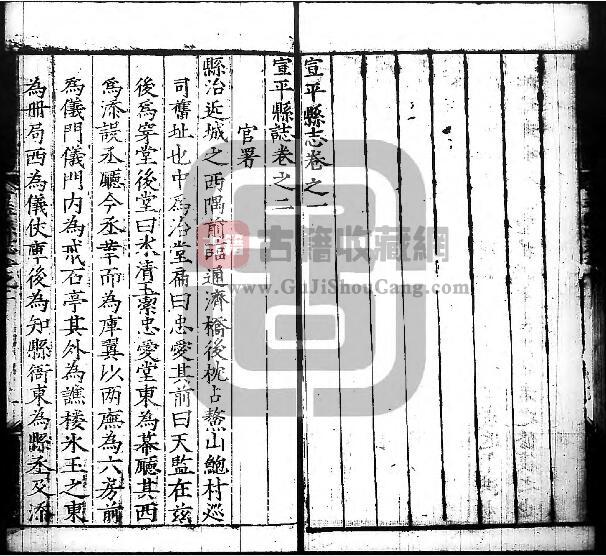 宣平縣志卷之一
宣平縣誌卷之二
官署
縣治近城之西隅前臨通濟橋後枕占鰲山鮑村巡
司舊址也中為治堂扁曰忠愛其前曰天監在玆
後為穿堂後堂曰氷清玉潔忠愛堂東為幕廳其西
為添設丞廳今丞革而為庫翼以兩廡為六房前
為儀門儀門内為戒石亭其外為譙樓氷玉之東
為册局西為儀仗庫後為知縣衙東為縣丞及添
古籍
古籍收藏網
www.GuJiShouCang.com